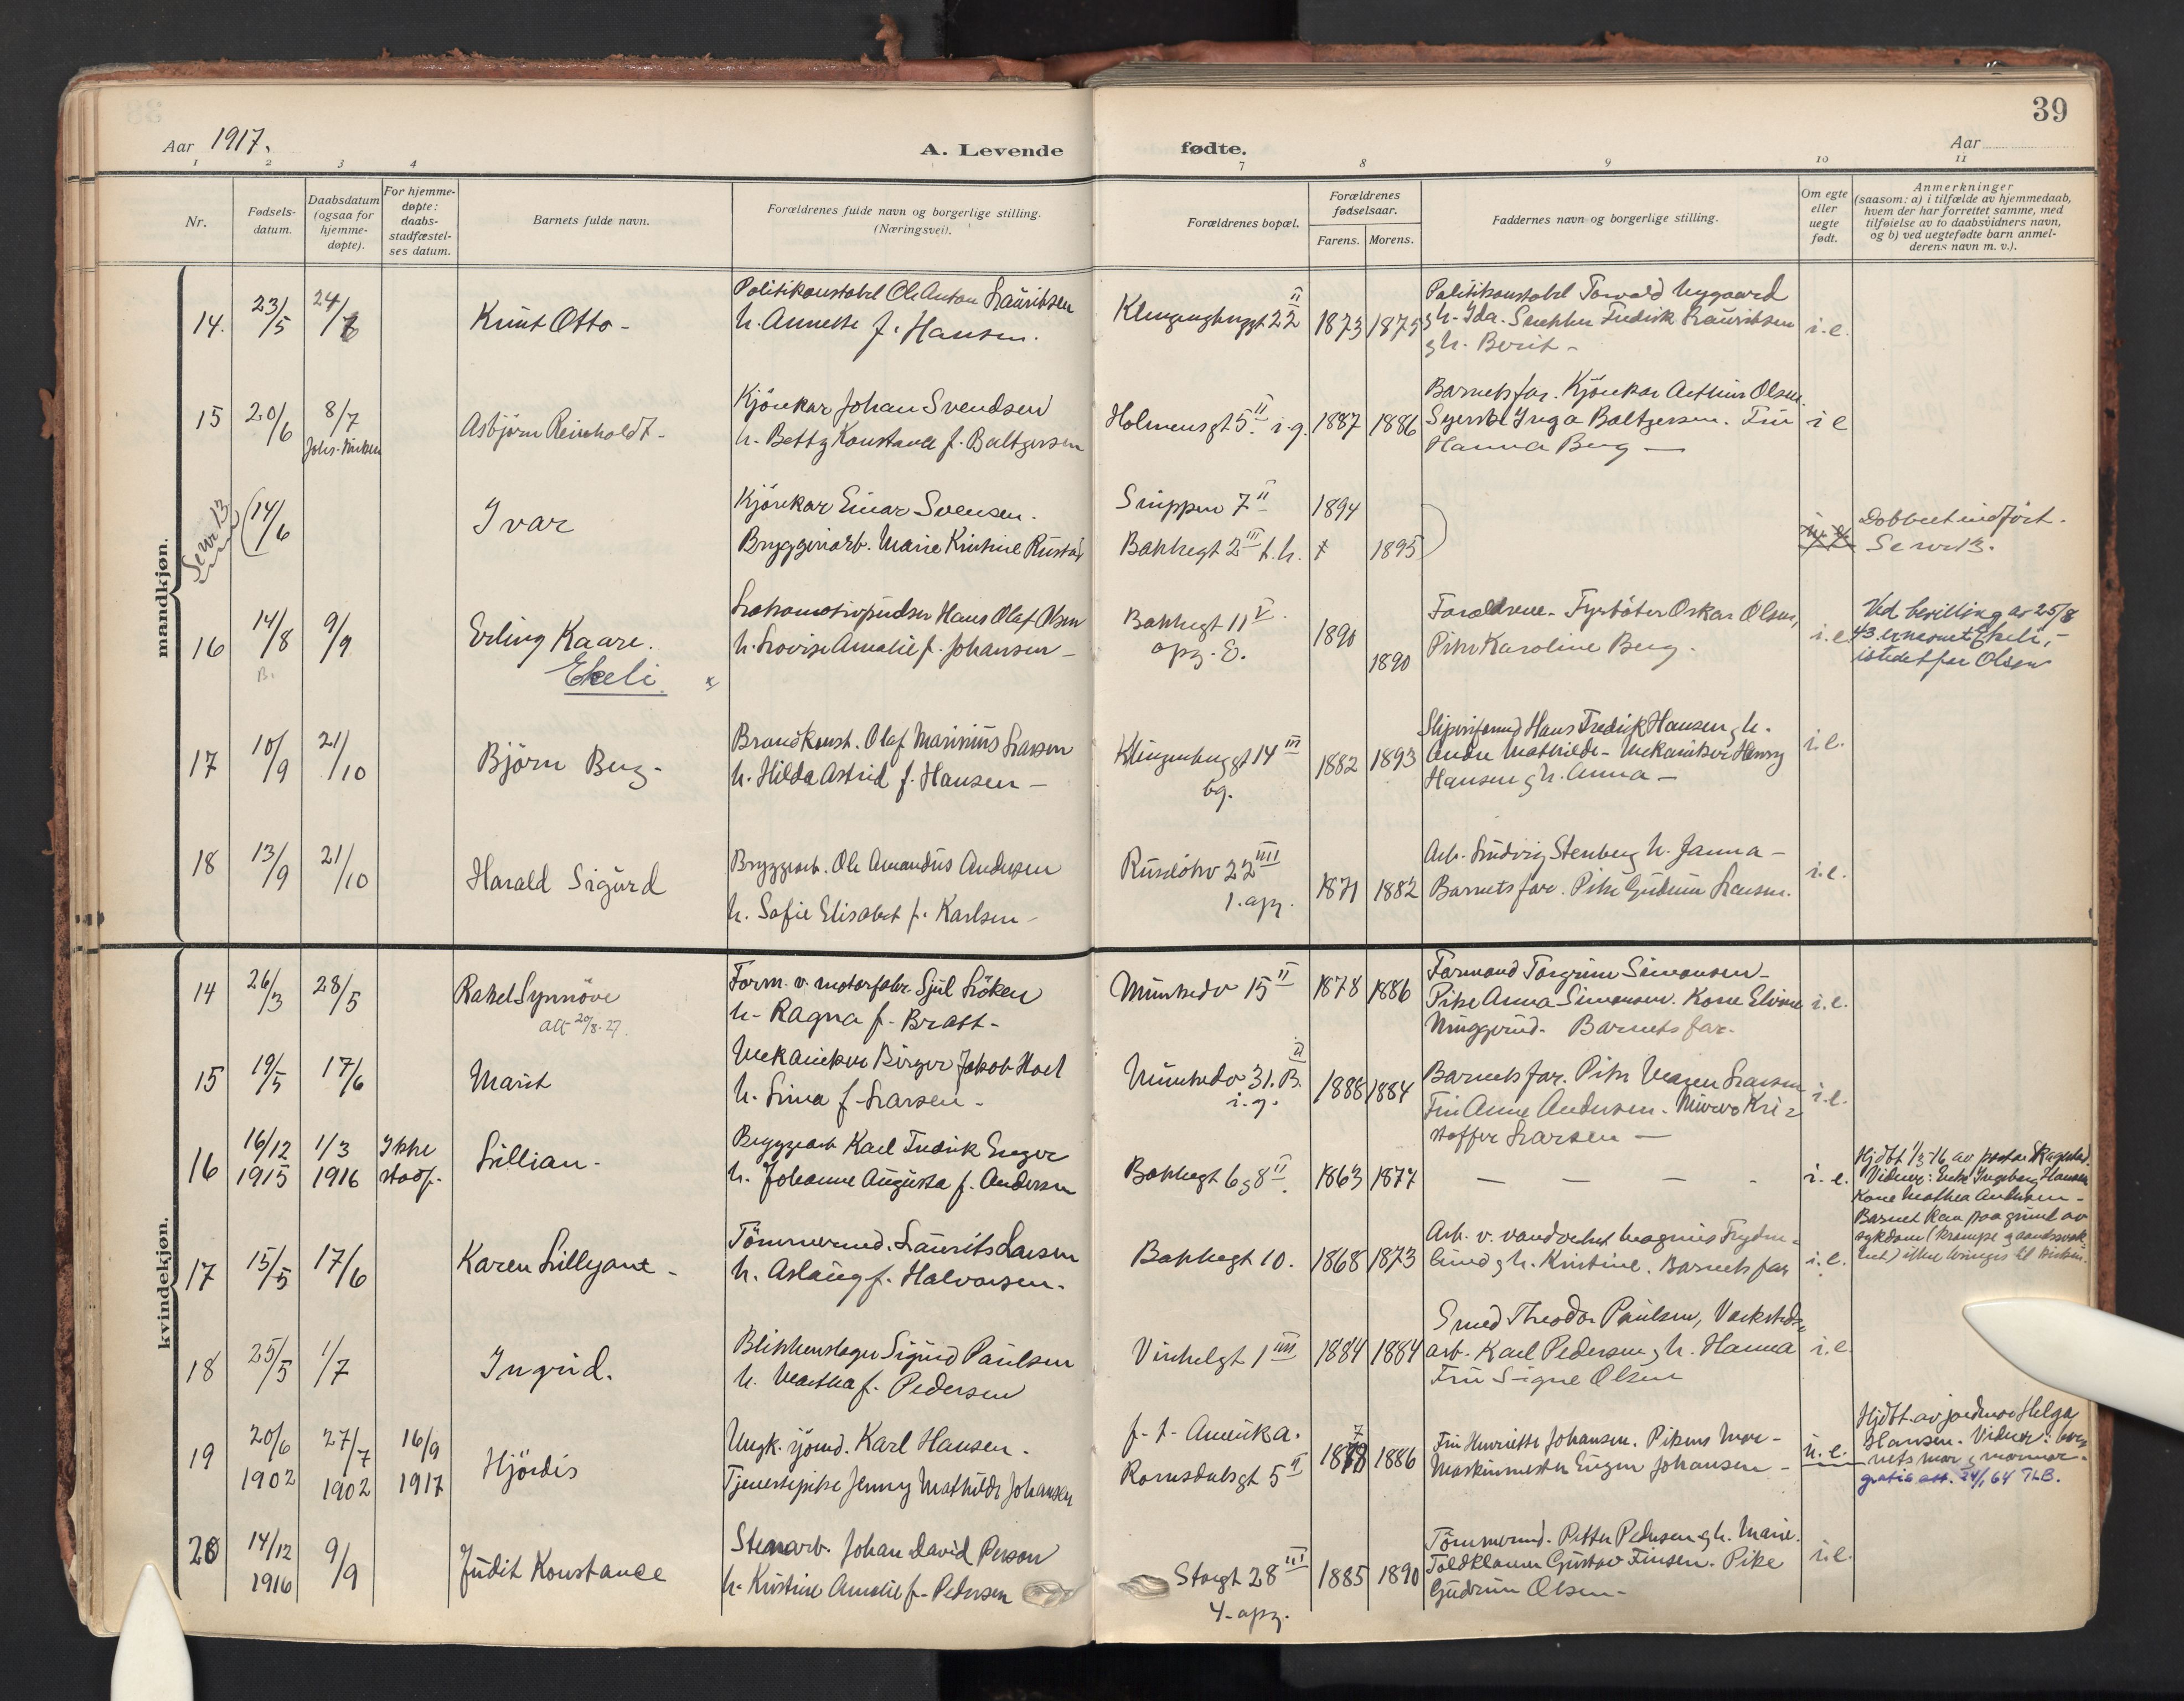 39
Aar 1917.
A. Levende fødte.
Aar
1 2 3 4 7 8 9 10 11
Nr.
Fødsels-
datum.
Daabsdatum
(ogsaa for
hjemme-
døpte).
For hjemme-
døpte:
daabs-
stadfæstel-
ses datum.
Barnets fulde navn.
Forældrenes fulde navn og borgerlige stilling.
(Næringsvei).
Forældrenes bopæl.
Forældrenes
fødselsaar.
Farens. Morens.
Faddernes navn og borgerlige stilling.
Om egte
eller
uegte
født.
Anmerkninger
(saasom: a) i tilfælde av hjemmedaab,
hvem der har forrettet samme, med
tilføielse av to daabsvidners navn,
og b) ved uegtefødte barn anmel-
derens navn m. v.).
mandkjøn.
14. 23/5 24/6 Knut Otto -
Politikonstabel Ole Anton Lauritsen
h. Annette f. Hansen.
22 II 1873 1875
Politikonstabel Torvald Nygaard
& h. Ida. Snekker Fredrik Lauritsen
& h. Berit -
i. e.
15 20/6 8/7
Asbjørn Reinholdt -
Kjørekar Johan Svendsen
h. Betty Konstance f. Baltzersen
Holmensgt 5 II i. g. 1887 1886
Barnets far. Kjørekar Arthur Olsen.
Syerske Inga Baltzersen. Fru
Hanna Berg —
i e
Se nr 13
(14/6
Ivar
Kjørekar Einar Svensen.
Bryggeriarb. Marie Kristine Rustad
Snippen 7 II 1894
Bakkegt 2 III t. h. 1895
Dobbelt indført.
Se nr 13.
16 14/8 9/9
Erling Kaare.
Ekeli
Lokomotivpudser Hans Olaf Olsen
h. Lovise Amalie f. Johansen -
Bakkegt 11 V
opg. 8.
1890
1890
Forældrene - Fyrbøter Oskar Olsen,
Pike Karoline Berg.
i. e.
Ved bevilling av 25/8
43 er navnet Ekeli,-
istedetfor Olsen
17 10/9 21/10
Bjørn Berg -
Brandkonst. Olaf Marinius Larsen
h. Hilda Astrid f. Hansen -
Klingenberggt 14 III
bg.
1882 1893
Hans Fredrik Hansen & h.
Andre Mathilde - Mekaniker Henry
Hansen & h. Anna -
i. e.
18 13/9 21/10
Harald Sigurd
Bryggearb. Ole Amandus Andersen
h. Sofie Elisabet f. Karlsen -
Ruseløkv 22 IIII
1. opg.
1871 1882
Arb. Ludvig Stenberg h. Janna -
Barnets far. Pike Gudrun Larsen.
i. e.
kvindekjøn.
14 26/3 28/5
Rakel Synnöve
att 20/8-27.
Form. v. motorfabr. Sjul Löken
h. Ragna f. Bratt -
Munkedv 15 II 1878 1886
Formand Torgrim Simonsen -
Pike Anna Simonsen. Kone
Barnets far.
i. e.
15 19/5 17/6
Marit
Mekaniker Birger Jakob Hoel
h. Lina f. Larsen -
Munkedv 31. B. II
i. g.
1888 1884
Barnets far. Pike Larsen
Fru Anne Andersen. Murer Kri=
stoffer Larsen —
i. e.
16 16/12 1915 1/3 1916 Ikke stadf.
Lillian -
Bryggearb Karl Fredrik Enger
h. Johanne Augusta f. Andersen
Bakkegt 6 & 8 II. 1863 1877
— — — -
i. e.
Hjdbt 1/3 16 av pastor
Vidner: Enke Ingeborg Hansen
Kone Mathea Andersen -
Barnet kan paa grund av
sykdom (krampe & aandssvak
het) ikke bringes til kirken.
17 15/5 17/6
Karen Lillyant -
Tömmermd. Laurits Larsen
h. Aslaug f. Halvorsen.
Bakkegt 10. 1868 1873
Arb. v. vandverket Magnus Fryden=
lund & h. Kristine. Barnets far
i. e.
18 25/5 1/7
Ingrid.
Blikkenslager Sigurd Paulsen
h. Martha f. Pedersen
Vinkelgt 1 IIII 1884 1884
Smed Theodor Paulsen, Verksteds=
arb. Karl Pedersen & h. Hanna
Fru Signe Olsen
i. e.
19 20/6 1902 27/7 1902 16/9 1917
Hjördis
Ungk. sjömd. Karl Hansen -
Tjenestepike Jenny Mathilde Johansen
f. t. Amerika.
Romsdalsgt 5 II
1878 1886
Fru Henriette Johansen. Pikens mor -
Maskinmester Eugen Johansen -
u. e.
Hjdbt. av jordmor Helga
Hansen. Vidner: bar-
nets mor & mormor.
gratis att. 24/1 64 ThB.
20 14/12 1916 9/9
Judit Konstance
Stenarb. Johan David Person
h. Kristine Amalie f. Pedersen
Storgt 28 III
4. opg.
1885 1890
Tömmermd. Petter Pedersen & h. Marie.
Gustav Finsen. Pike
Gudrun Olsen -
i. e.